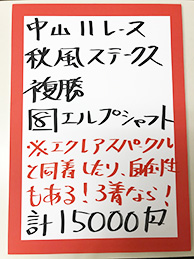 中山11レース
秋風ステークス
複勝
⑧エルプシャフト
※エクレアスパークル
と同着したり、反則性
もある!3着なら!
計15000円